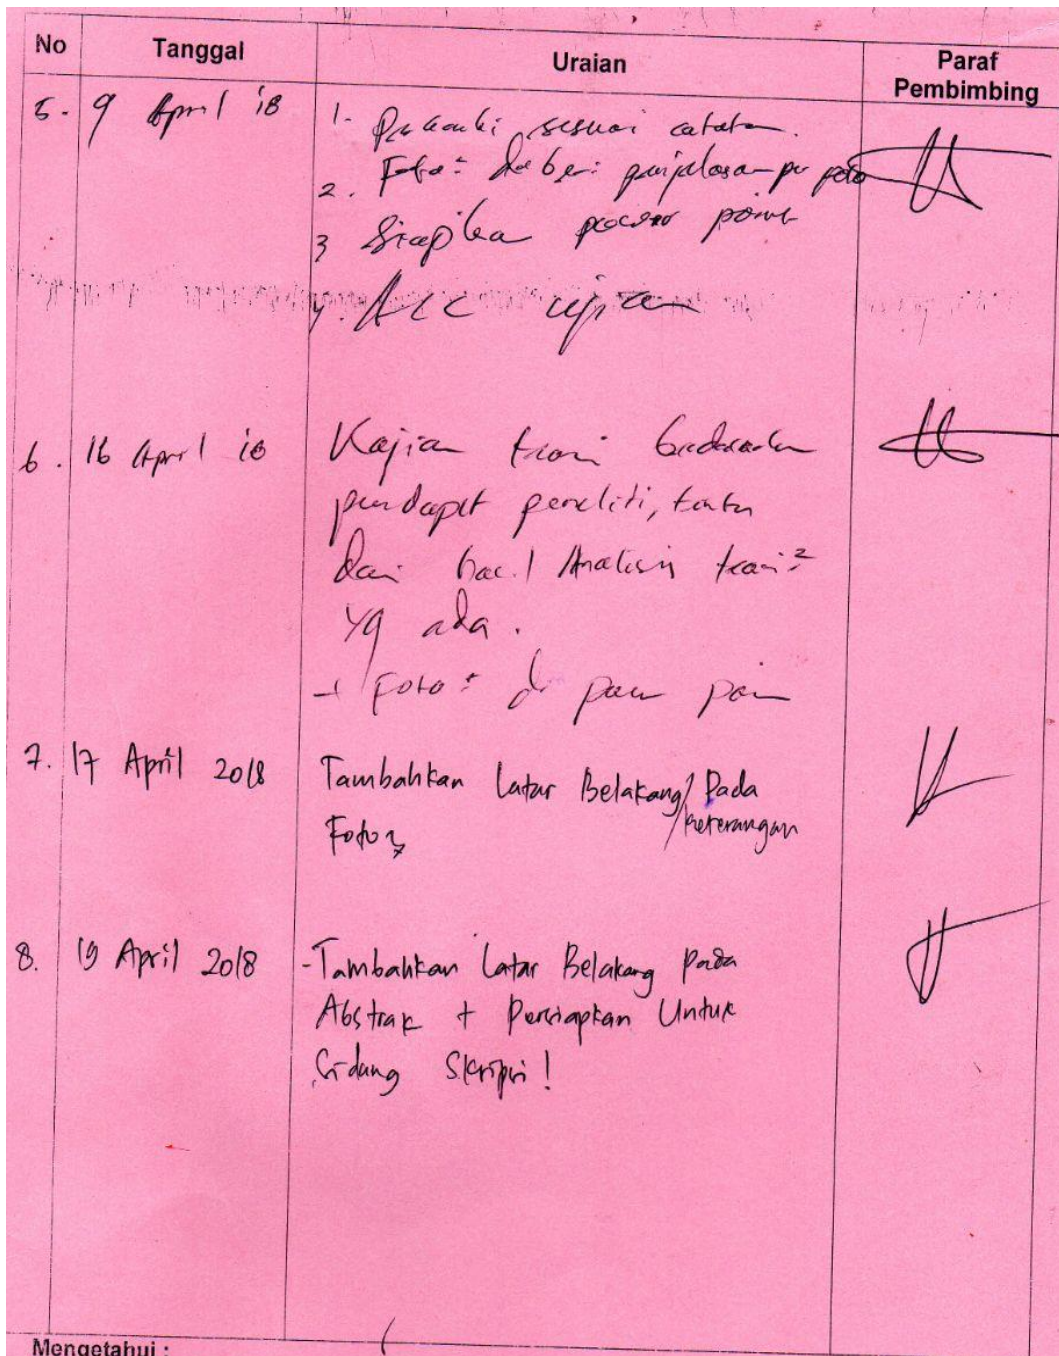 No Tanggal Uraian Paraf
Pembimbing
5. 9 April '18 1. Perbaiki sesuai catatan.
2. Foto² diberi penjelasan per foto
3 Siapkan power point
4. Acc ujian
6. 16 April '18 Kajian teori
pendapat peneliti, tentu
dari hasil Analisis teori²
yg ada.
Foto²
7. 17 April 2018 Tambahkan Latar Belakang/ Pada
Foto² /keterangan
8. 19 April 2018 -Tambahkan Latar Belakang Pada
Abstrak + Persiapkan Untuk
Sidang Skripsi!
Mengetahui :